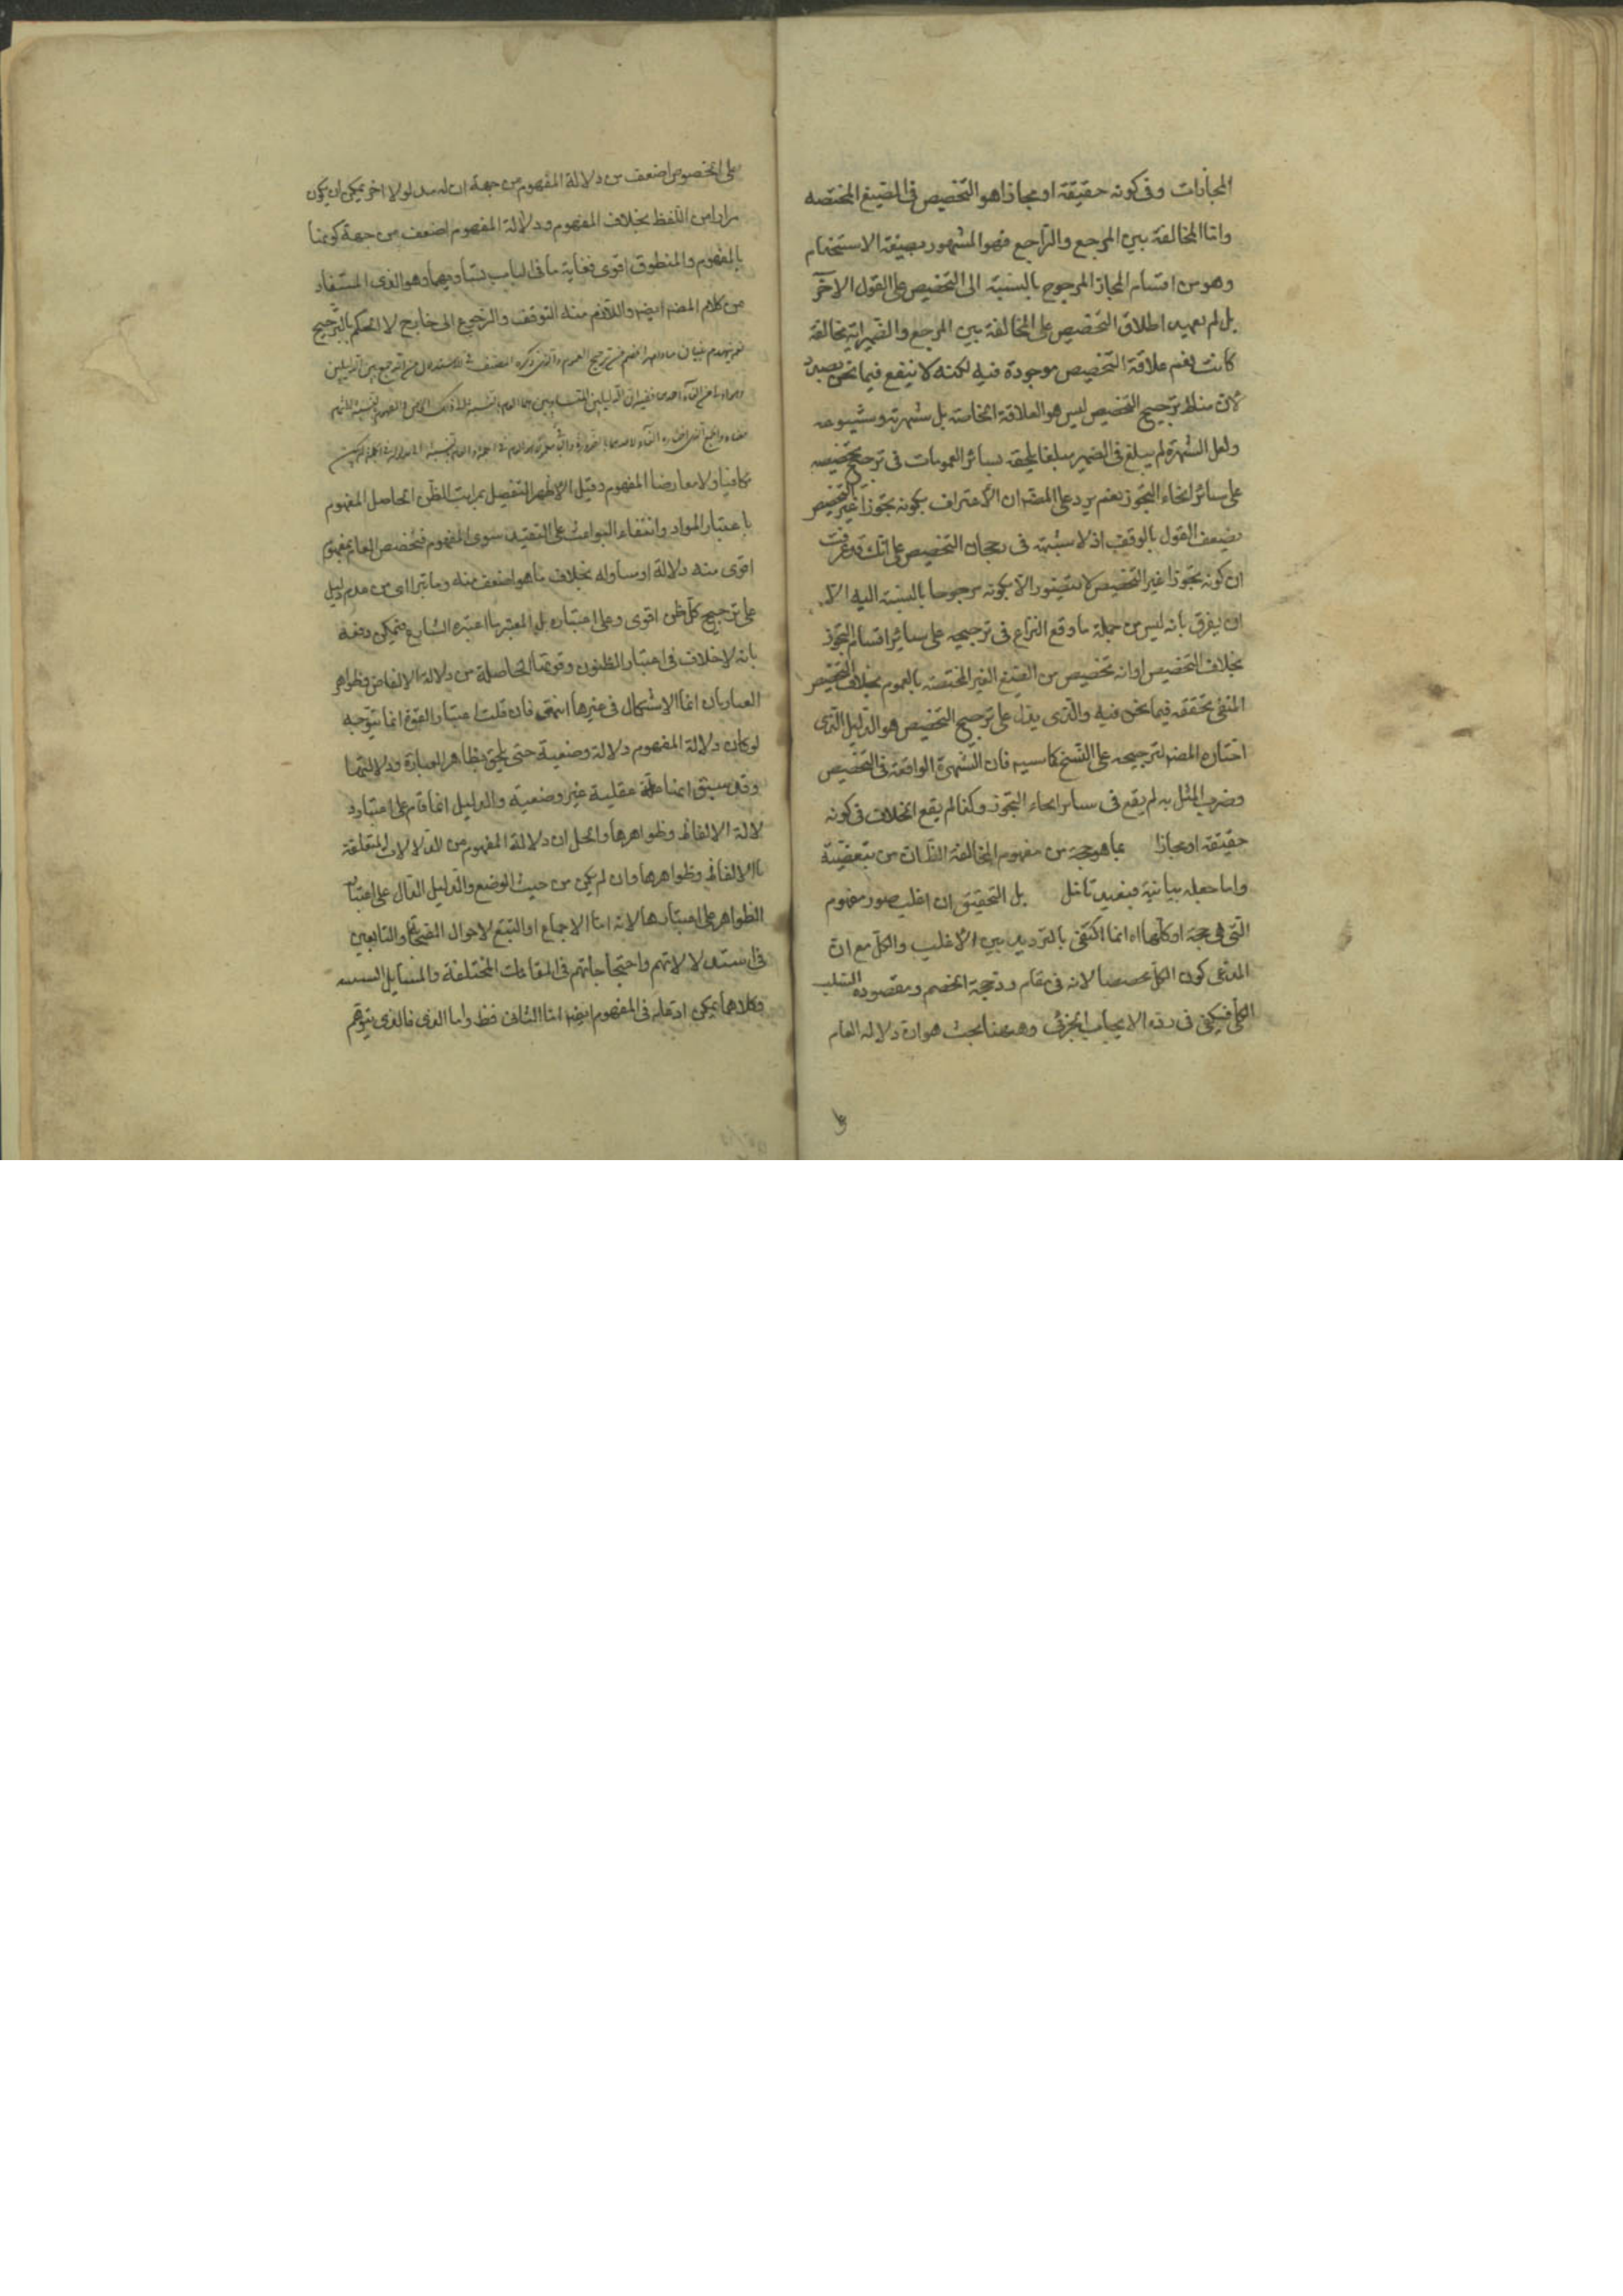 المجازات وفى كونه حقيقة او مجازا هو التخصيص فى الصيغ المختصه
واما المخالفة بين المرجع والراجع فهو المشهور بصيغة الاستخدام
وهو من اقسام المجاز المرجوح بالنسبة الى التخصيص على القول الآخر
بل لم يعهد اطلاق التخصيص على المخالفة بين المرجع والضمير اية مخالفة
كانت نعم علاقة التخصيص موجودة فيه لكنه لا ينفع فيما نحن بصدده
لان مناط ترجيح التخصيص ليس هو العلاقة الخاصة بل شهرته وشيوعه
ولعل الشهرة لم يبلغ فى الضمير مبلغا يلحقه بسائر العمومات فى ترجيح تخصيصه
على سائر انحاء التجوز نعم يرد على المصّ ان الاعتراف بكونه تجوزا غير التخصيص
يضعف القول بالوقف اذ لا شبهة فى رجحان التخصيص على انك قد عرفت
ان كونه تجوزا غير التخصيص لا يتصور الا بكونه مرجوحا بالنسبة اليه الا
ان يفرق بانه ليس من جملة ما وقع النزاع فى ترجيحه على سائر اقسام التجوز
بخلاف التخصيص او انه تخصيص من الصيغ الغير المختصة بالعموم بخلاف التخصيص
المنفى تحققه فيما نحن فيه والذى يدل على ترجيح التخصيص هو الدليل الذى
اختاره المصّ لترجيحه على النسخ كما سيه فان الشهرة الواقعة فى التخصيص
وضرب المثل به لم يقع فى سائر انحاء التجوز وكذا لم يقع الخلاف فى كونه
حقيقة او مجازا بما هو حجة من مفهوم المخالفة الظ ان من تبعضية
واما جعله بيانية فبعيد تامل بل التحقيق ان اغلب صور مفهوم
التى هى حجة او كلها اه انما اكتفى بالترديد بين الاغلب والكل مع ان
المدعى كون الكل مخصصا لانه فى مقام رد حجة الخصم ومقصوده السلب
الكلى فيكفى فى رده الايجاب الجزئى وههنا بحث هو ان دلالة العام
على
على الخصوص اضعف من دلالة المفهوم من جهة ان له مدلولا اخر يمكن ان يكون
مرادا من اللفظ بخلاف المفهوم ودلالة المفهوم اضعف من جهة كونها
بالمفهوم والمنطوق اقوى فغاية ما فى الباب تساويهما وهو الذى المستفاد
من كلام المصّ ايضا واللازم منه التوقف والرجوع الى خارج لا الحكم بالترجيح
كافيا ولا معارضا المفهوم وقيل الاظهر التفصيل بمراتب الظن الحاصل المفهوم
باعتبار المواد وانتفاء البواعث على التقييد سوى المفهوم فتخصص العام بمفهوم
اقوى منه دلالة او مساوله بخلاف ما هو اضعف منه وما ترا اى من عدم دليل
على ترجيح كل ظن اقوى وعلى اعتباره بل المعتبر ما اعتبره الشارع فيمكن دفعه
بانه لا خلاف فى اعتبار الظنون وقوتها الحاصلة من دلالة الالفاظ وظواهر
العبارات انما الاشكال فى غيرها انتهى فان قلت اعتبار القوة انما يتوجه
لو كان دلالة المفهوم دلالة وضعية حتى يلحق بظاهر العبارة ودلالتها
وقد سبق انها عقلية غير وضعية والدليل انما قام على اعتبار د
لالة الالفاظ وظواهرها والحل ان دلالة المفهوم من الدلالات المتعلقة
باالالفاظ وظواهرها وان لم يكن من حيث الوضع والدليل الدال على اعتبار
الظواهر على اعتبارها لانه اما الاجماع او التتبع لاحوال الصحابة والتابعين
فى استدلالاتهم واحتجاجاتهم فى المقامات المختلفة والمسايل
وكلاهما يمكن ادعائه فى المفهوم ايضا اما الثانى فظ واما الذى فالذى يتوهم